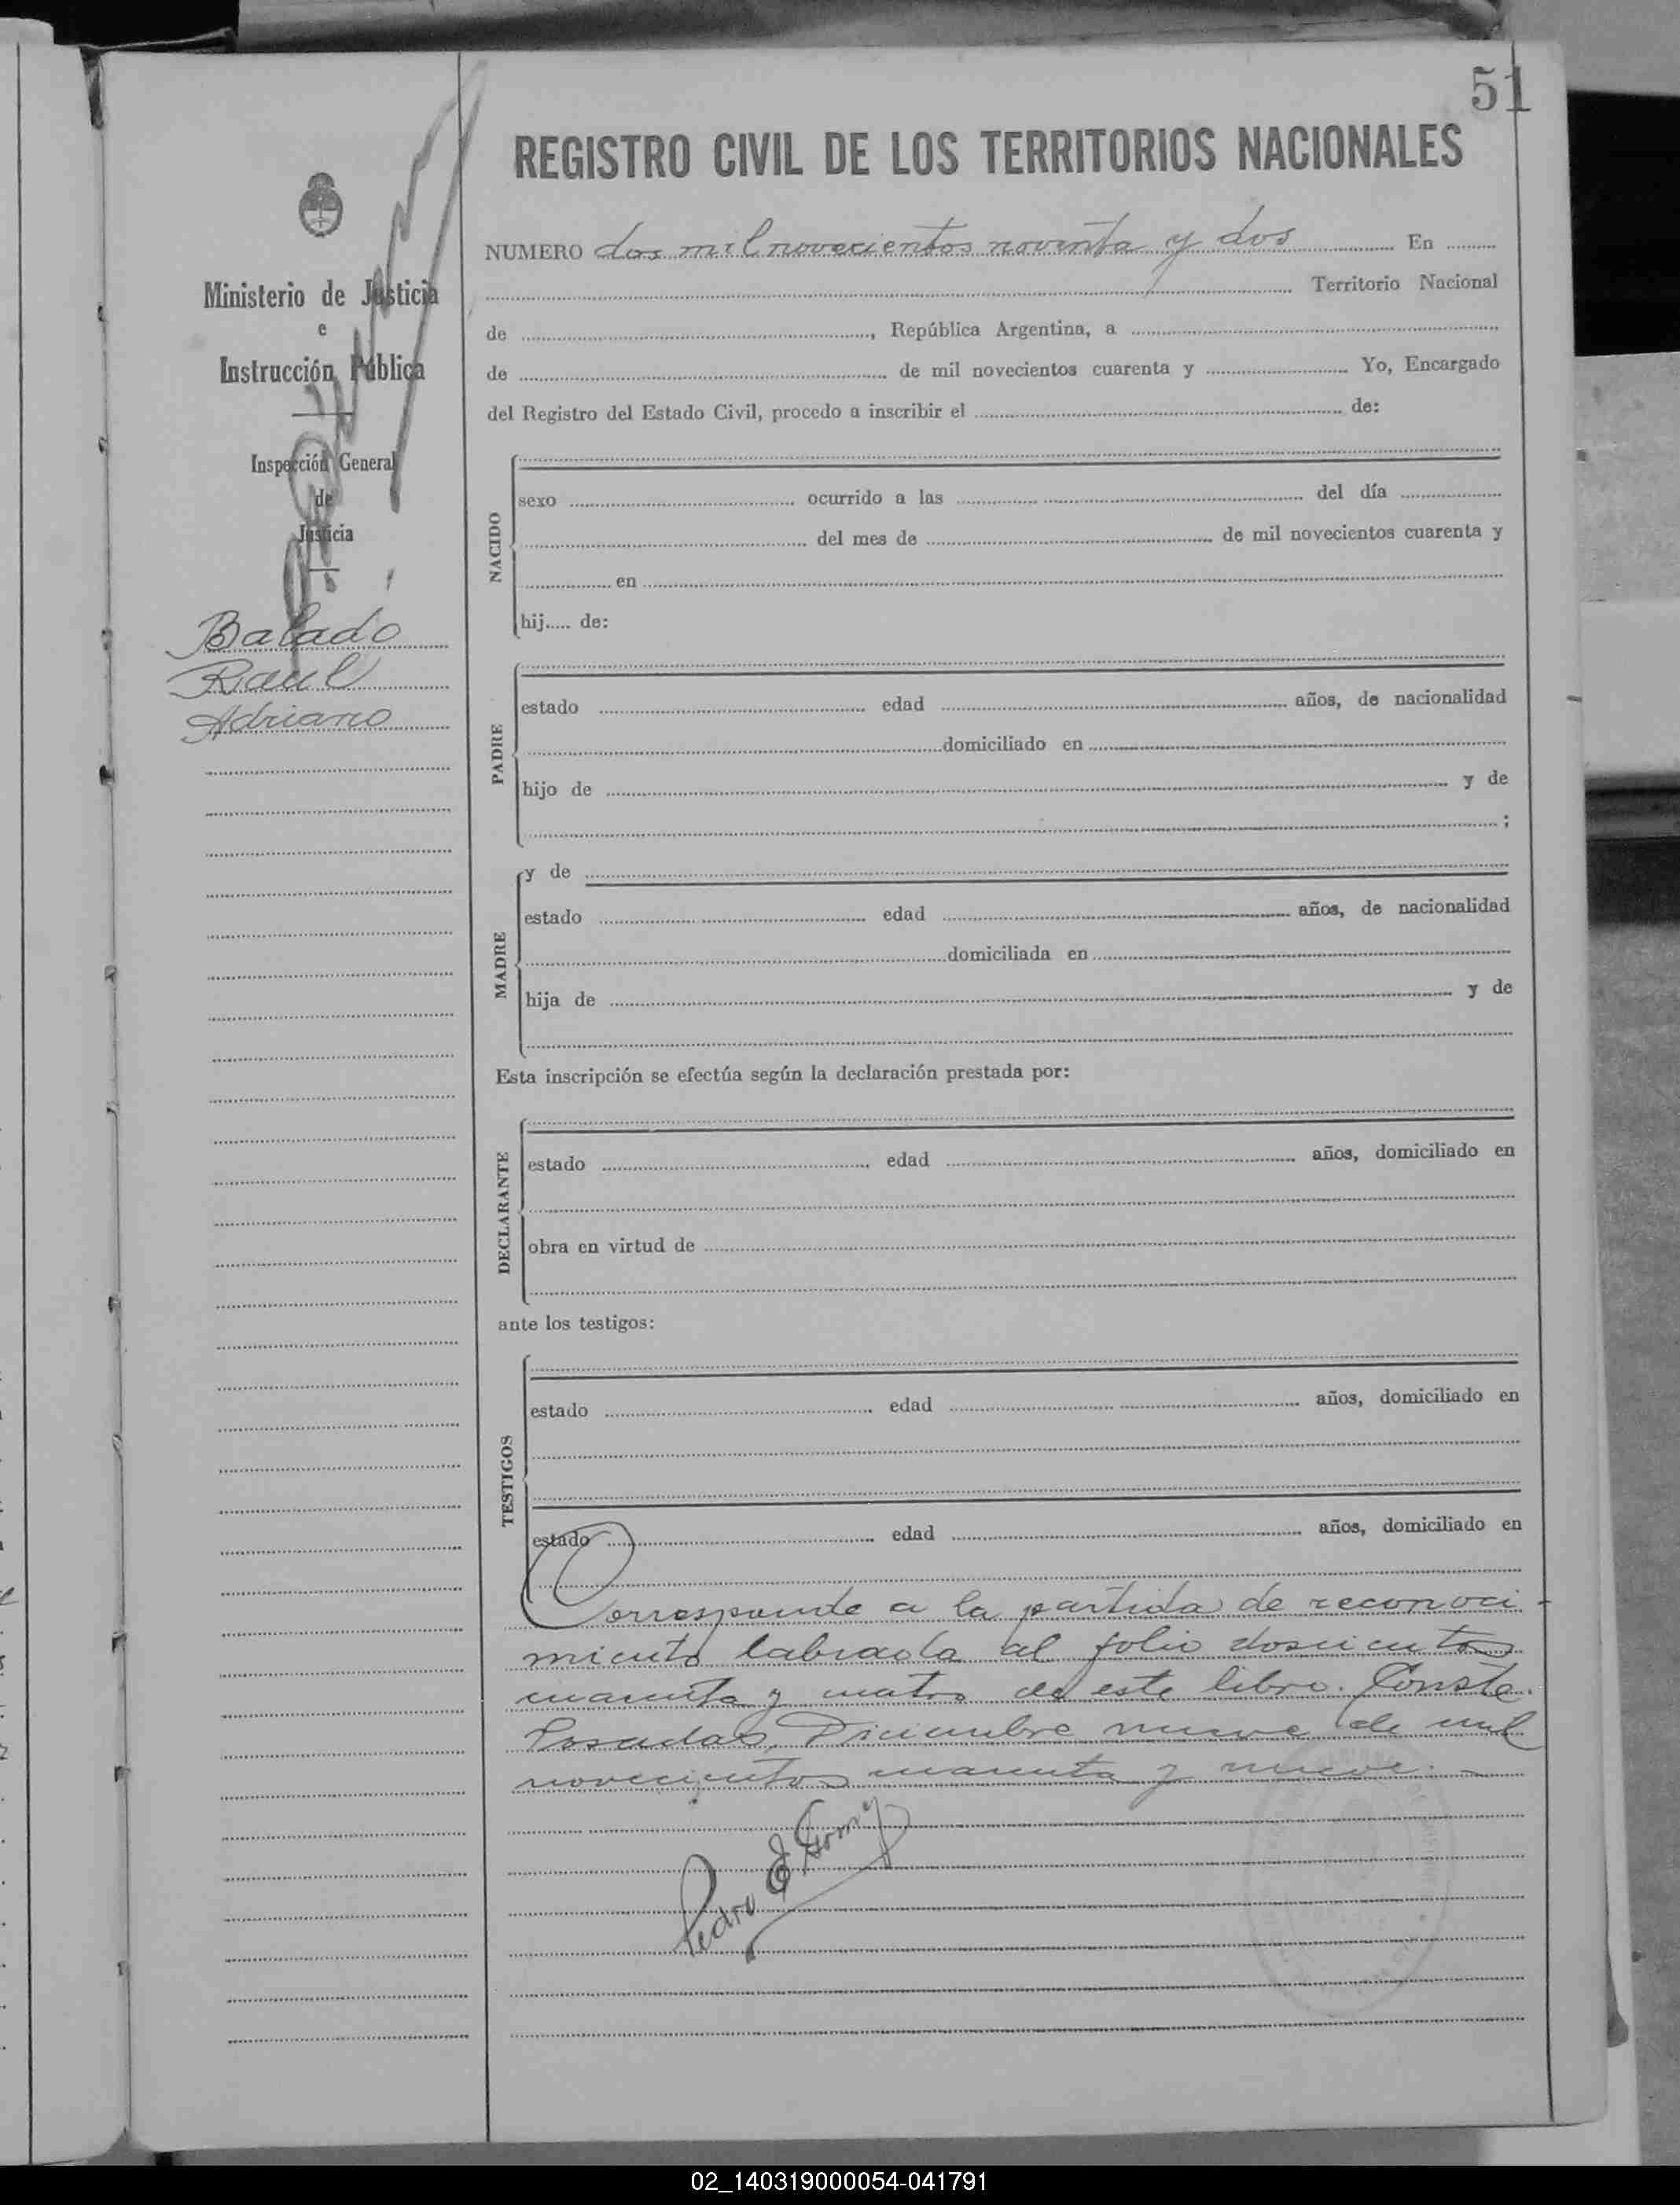 51
REGISTRO CIVIL DE LOS TERRITORIOS NACIONALES
Ministerio de Justicia
e
Instrucción Pública
Inspección General
de
Justicia
Balado
Raúl
Adriano
NUMERO dos mil novecientos noventa y dos En
Territorio Nacional
de , República Argentina, a
de de mil novecientos cuarenta y Yo, Encargado
del Registro del Estado Civil, procedo a inscribir el de:
NACIDO
sexo ocurrido a las del día
del mes de de mil novecientos cuarenta y
en
hij..... de:
PADRE
estado edad años, de nacionalidad
domiciliado en
hijo de y de
;
MADRE
y de
estado edad años, de nacionalidad
domiciliada en
hija de y de
Esta inscripción se efectúa según la declaración prestada por:
DECLARANTE
estado edad años, domiciliado en
obra en virtud de
ante los testigos:
TESTIGOS
estado edad años, domiciliado en
estado edad años, domiciliado en
Corresponde a la partida de reconoci-
miento labrada al folio doscientos
cuarenta y cuatro de este libro. Conste.
Posadas, Diciembre nueve de mil
novecientos cuarenta y nueve.-
Pedro
02_140319000054-041791